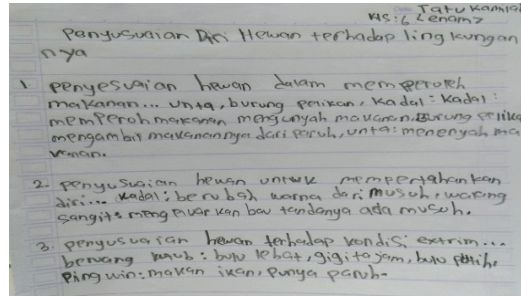 Tatu Kamila
KIS: 6 (enam)
Penyusuaian Diri Hewan terhadap lingkungan
nya
1. penyesuaian hewan dalam memperoleh
makanan... unta, burung pelikan, kadal: kadal:
memperoh makanan mengunyah makanan, Burung pelika
mengambil makanannya dari paruh, unta: menenyah ma
kanan.
2. penyusuaian hewan untuk mempertahankan
diri... kadal: berubah warna dari musuh, walang
sangit: mengeluarkan bau tandanya ada musuh.
3. penyusuaian hewan terhadap kondisi extrim...
beruang kutub: bulu lebat, gigi tajam, bulu putih,
Pingwin: makan ikan, punya paruh.